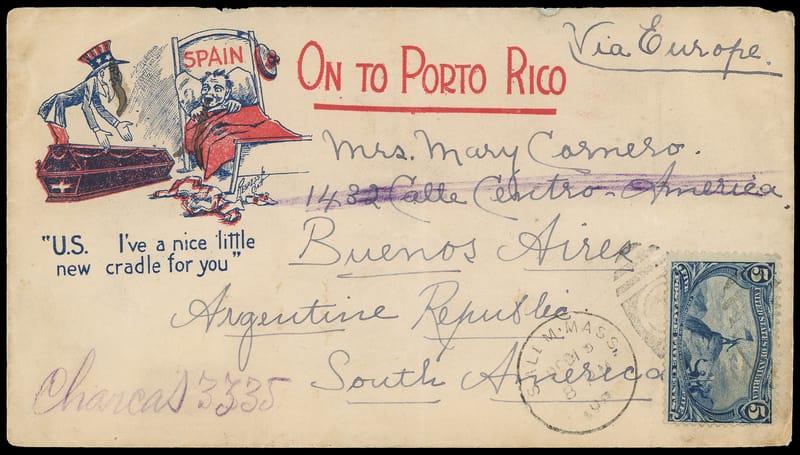 SPAIN
ON TO PORTO RICO
Via Europe.
"U.S. I've a nice little
new cradle for you"
Mrs. Mary Cornero.
1432 Calle Centro-America.
Buenos Aires
Argentine Republic.
South America
Charcas 3335
MASS.
UNITED STATES OF AMERICA
5
5